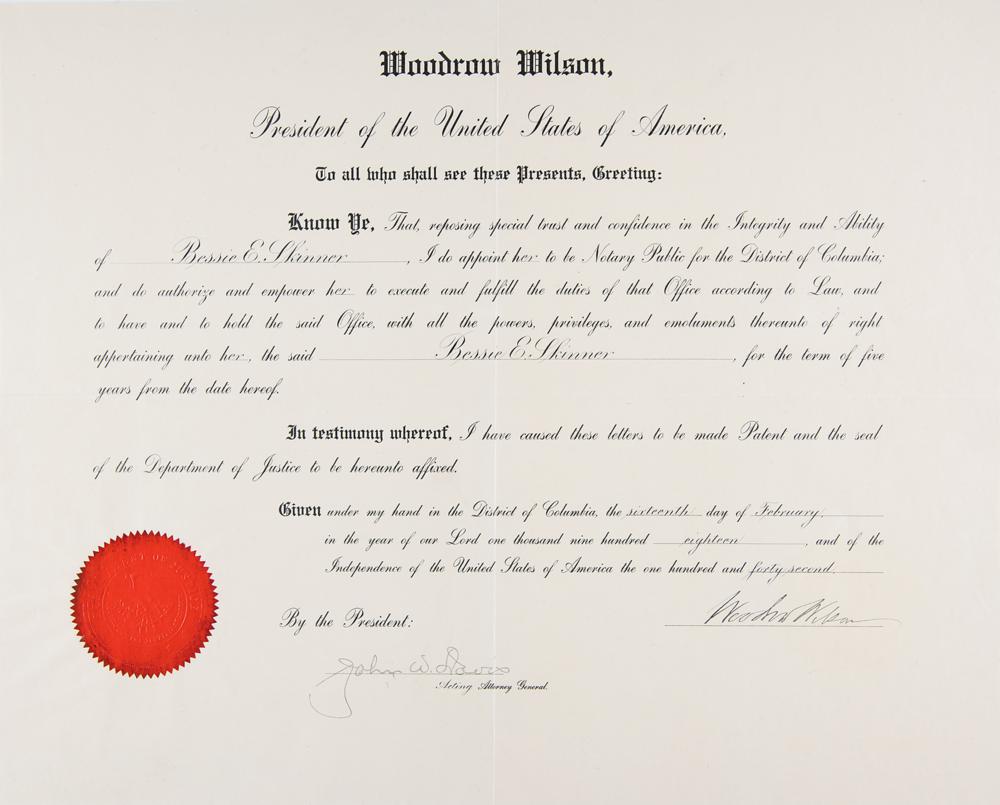 Woodrow Wilson,
President of the United States of America,
To all who shall see these Presents, Greeting:
Know Ye, That, reposing special trust and confidence in the Integrity and Ability
of Bessie E. Skinner, I do appoint her to be Notary Public for the District of Columbia;
and do authorize and empower her to execute and fulfill the duties of that Office according to Law, and
to have and to hold the said Office, with all the powers, privileges, and emoluments thereunto of right
appertaining unto her, the said Bessie E. Skinner, for the term of five
years from the date hereof.
In testimony whereof, I have caused these letters to be made Patent and the seal
of the Department of Justice to be hereunto affixed.
Given under my hand in the District of Columbia, the sixteenth day of February,
in the year of our Lord one thousand nine hundred eighteen, and of the
Independence of the United States of America the one hundred and forty second.
Woodrow Wilson
By the President:
John W. Davis
Acting Attorney General.